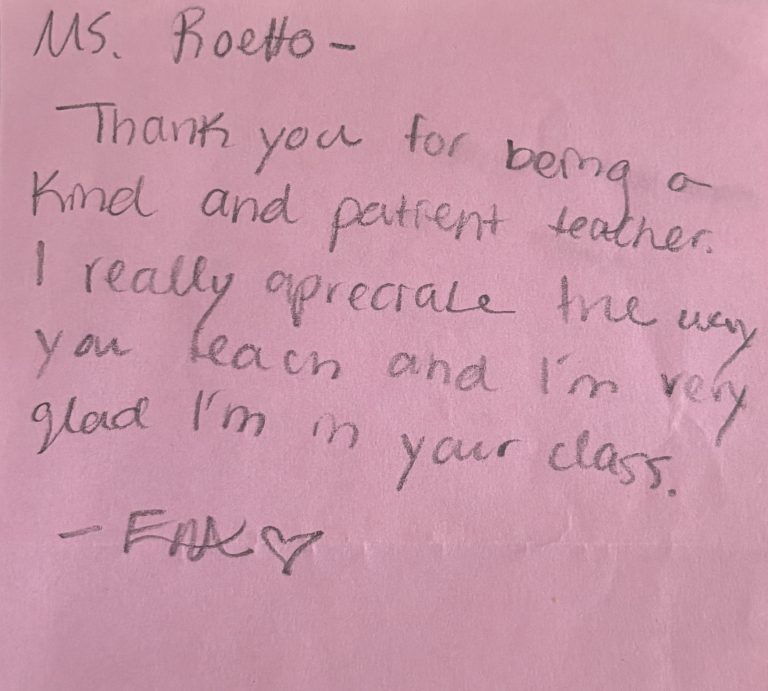 Ms. Roetto -
Thank you for being a
kind and patient teacher.
I really apreciate the way
you teach and I'm very
glad I'm in your class.
- ♡